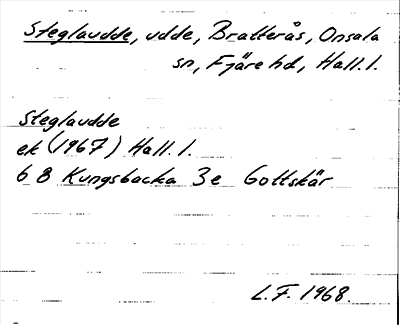 Steglaudde, udde, Bratterås, Onsala
sn, Fjäre hd, Hall. l.
Steglaudde
ek (1967) Hall. l.
6 B Kungsbacka 3e Gottskär
L.F. 1968.